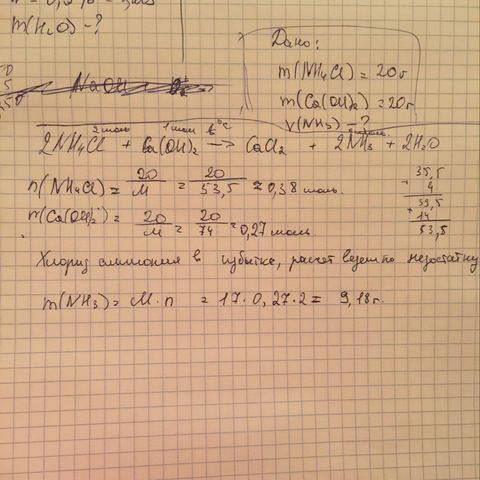 m(H₂O) - ?
Дано:
m(NH₄Cl) = 20г
m(Ca(OH)₂) = 20г
v(NH₃) - ?
NaOH
2 моль 1 моль t°C
2NH₄Cl + Ca(OH)₂ → CaCl₂ + 2NH₃ + 2H₂O
n(NH₄Cl) = 20/M = 20/53,5 = 0,38 моль.
m(Ca(OH)₂) = 20/M = 20/74 = 0,27 моль.
35,5
+ 4
39,5
+ 14
53,5
Хлорид аммония в избытке, расчет ведем по недостатку
m(NH₃) = M·n = 17·0,27·2 = 9,18г.